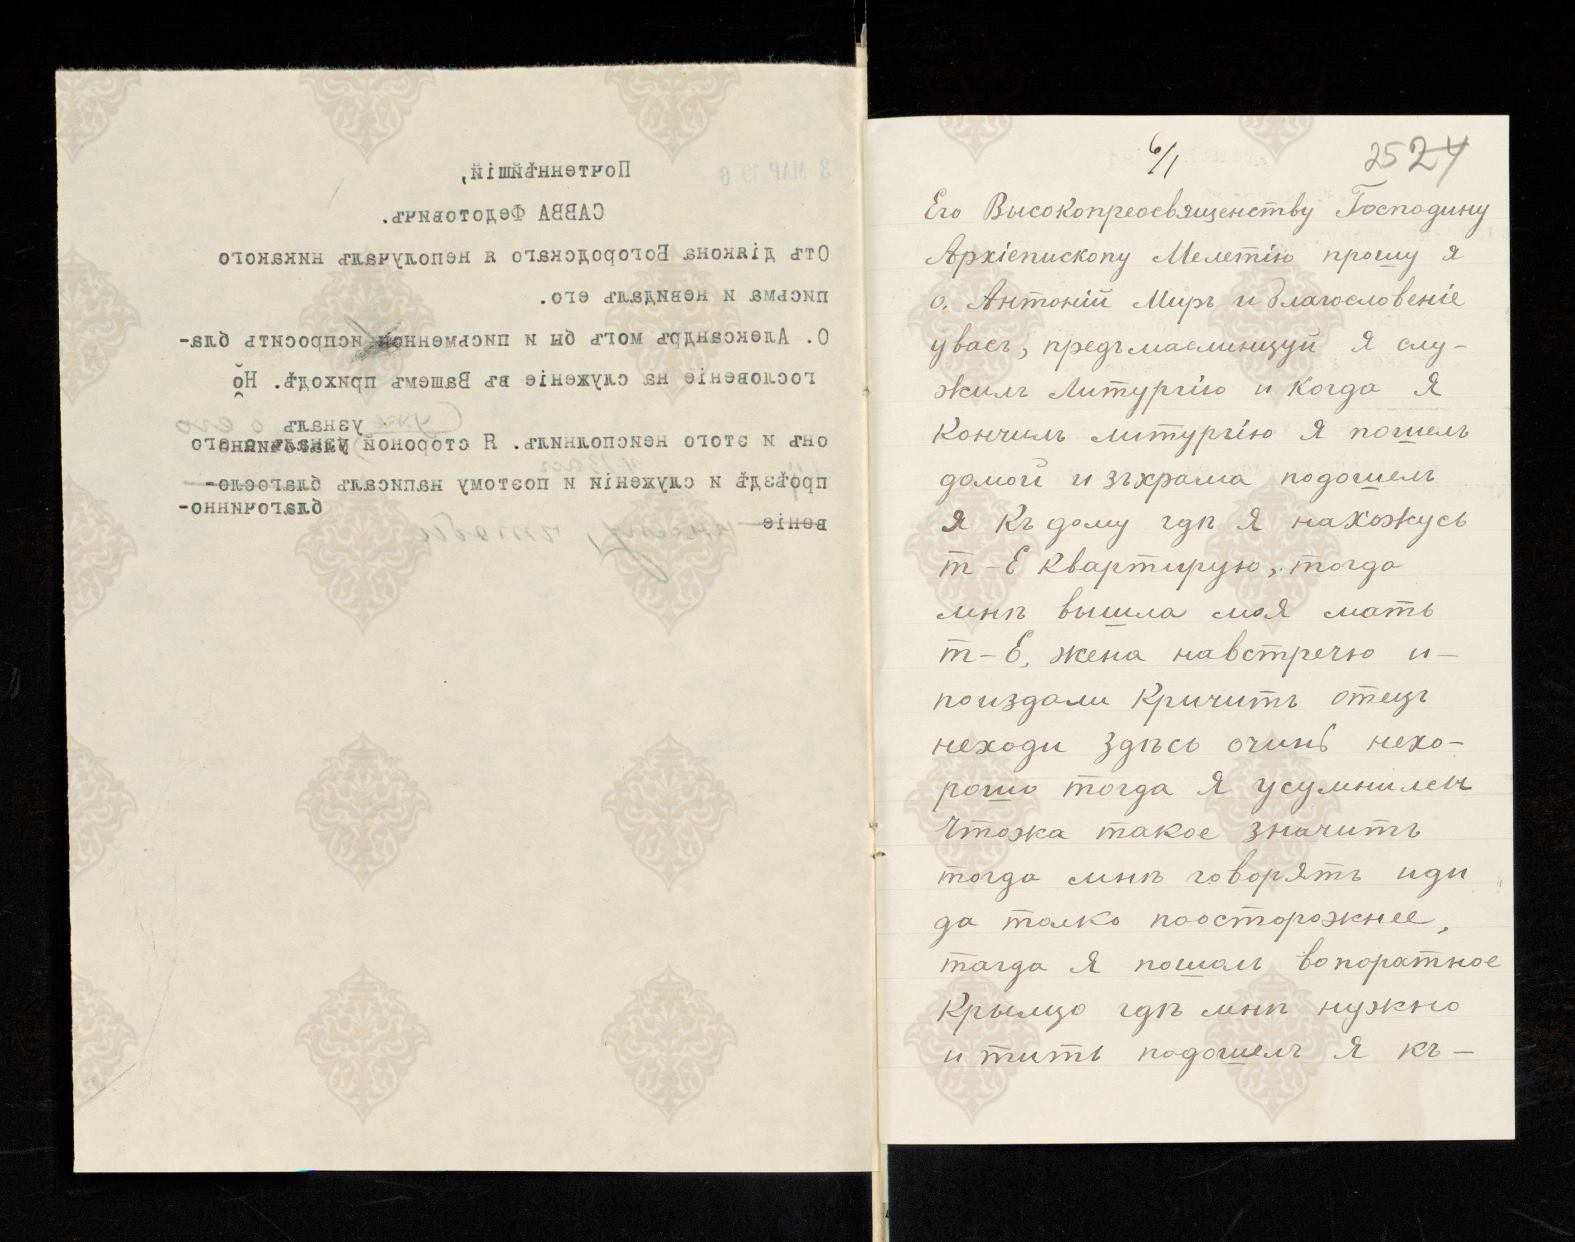 3 МАР 19 6
Почтеннѣйшій,
САВВА Федотовичъ.
Отъ діакона Богородскаго я неполучалъ никакого
письма и невидалъ его.
О. Александръ могъ бы и письменной испросить бла-
гословеніе на служеніе въ Вашемъ приходѣ. Но
узналъ о его
онъ и этого неисполнилъ. Я стороной
проѣздѣ и служеніи и поэтому написалъ благосло-
благочинно-
веніе
6/1
25 24
Его Высокопреосвященству Господину
Архіепископу Мелетію прошу я
о. Антоній Миръ и благословеніе
увасъ, предъмаслинцуй Я слу-
жилъ Литургію и Когда Я
Кончилъ литургію Я пошелъ
домой и зъхрама подошелъ
я Къ дому гдѣ Я нахожусь
т-Е Квартирую, тогда
мнѣ вышла моя мать
т-Е, жена навстречю и-
поиздали Кричитъ отецъ
неходи здѣсь очинь нехо-
рошо тогда Я усумнилси
Чтожа такое значитъ
тогда мнѣ говорятъ иди
да толко поосторожнее,
тагда Я пошолъ вопоратное
Крылцо гдѣ мнѣ нужно
и тить подошелъ Я къ-